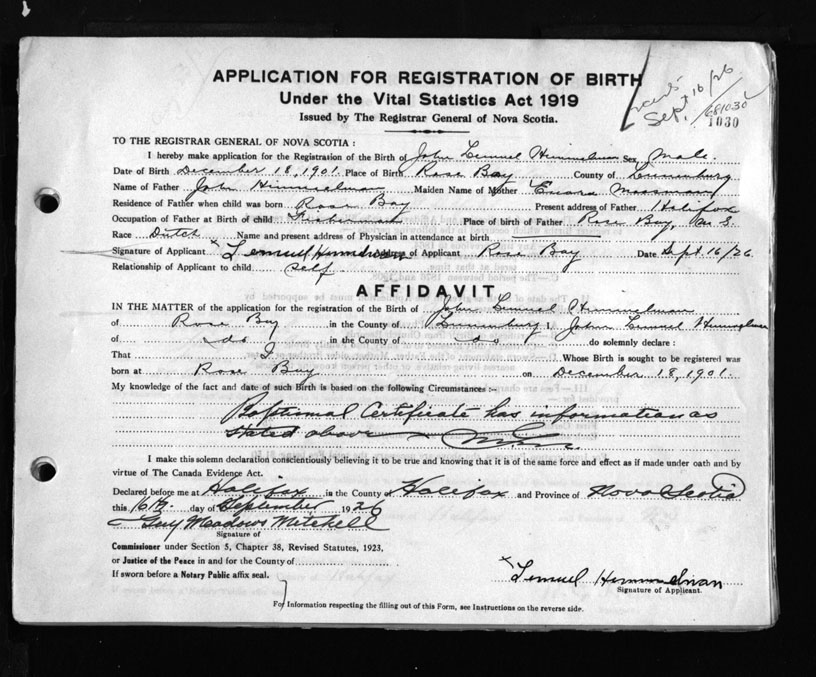 APPLICATION FOR REGISTRATION OF BIRTH
Under the Vital Statistics Act 1919
Issued by The Registrar General of Nova Scotia.
Sept. 16/26
681030
1030
TO THE REGISTRAR GENERAL OF NOVA SCOTIA:
I hereby make application for the Registration of the Birth of John Lemuel Himmelman Sex Male.
Date of Birth December 18, 1901. Place of Birth Rose Bay County of Lunenburg
Name of Father John Himmelman Maiden Name of Mother Mossman
Residence of Father when child was born Rose Bay Present address of Father Halifax
Occupation of Father at Birth of child Fisherman Place of birth of Father Rose Bay, N. S.
Race Dutch Name and present address of Physician in attendance at birth
Signature of Applicant x Lemuel Himmelman of Applicant Rose Bay Date Sept. 16/26
Relationship of Applicant to child self.
AFFIDAVIT
IN THE MATTER of the application for the registration of the Birth of John Lemuel Himmelman
of Rose Bay in the County of Lunenburg I, John Lemuel Himmelman
of do in the County of do do solemnly declare:
That I Whose Birth is sought to be registered was
born at Rose Bay on December 18, 1901.
My knowledge of the fact and date of such Birth is based on the following Circumstances:-
Baptismal Certificate has information as
stated above
I make this solemn declaration conscientiously believing it to be true and knowing that it is of the same force and effect as if made under oath and by
virtue of The Canada Evidence Act.
Declared before me at Halifax in the County of Halifax and Province of Nova Scotia
this 16th day of September 1926
Guy Meadows Mitchell
Signature of
Commissioner under Section 5, Chapter 38, Revised Statutes, 1923,
or Justice of the Peace in and for the County of
If sworn before a Notary Public affix seal.
x Lemuel Himmelman
Signature of Applicant.
For Information respecting the filling out of this Form, see Instructions on the reverse side.